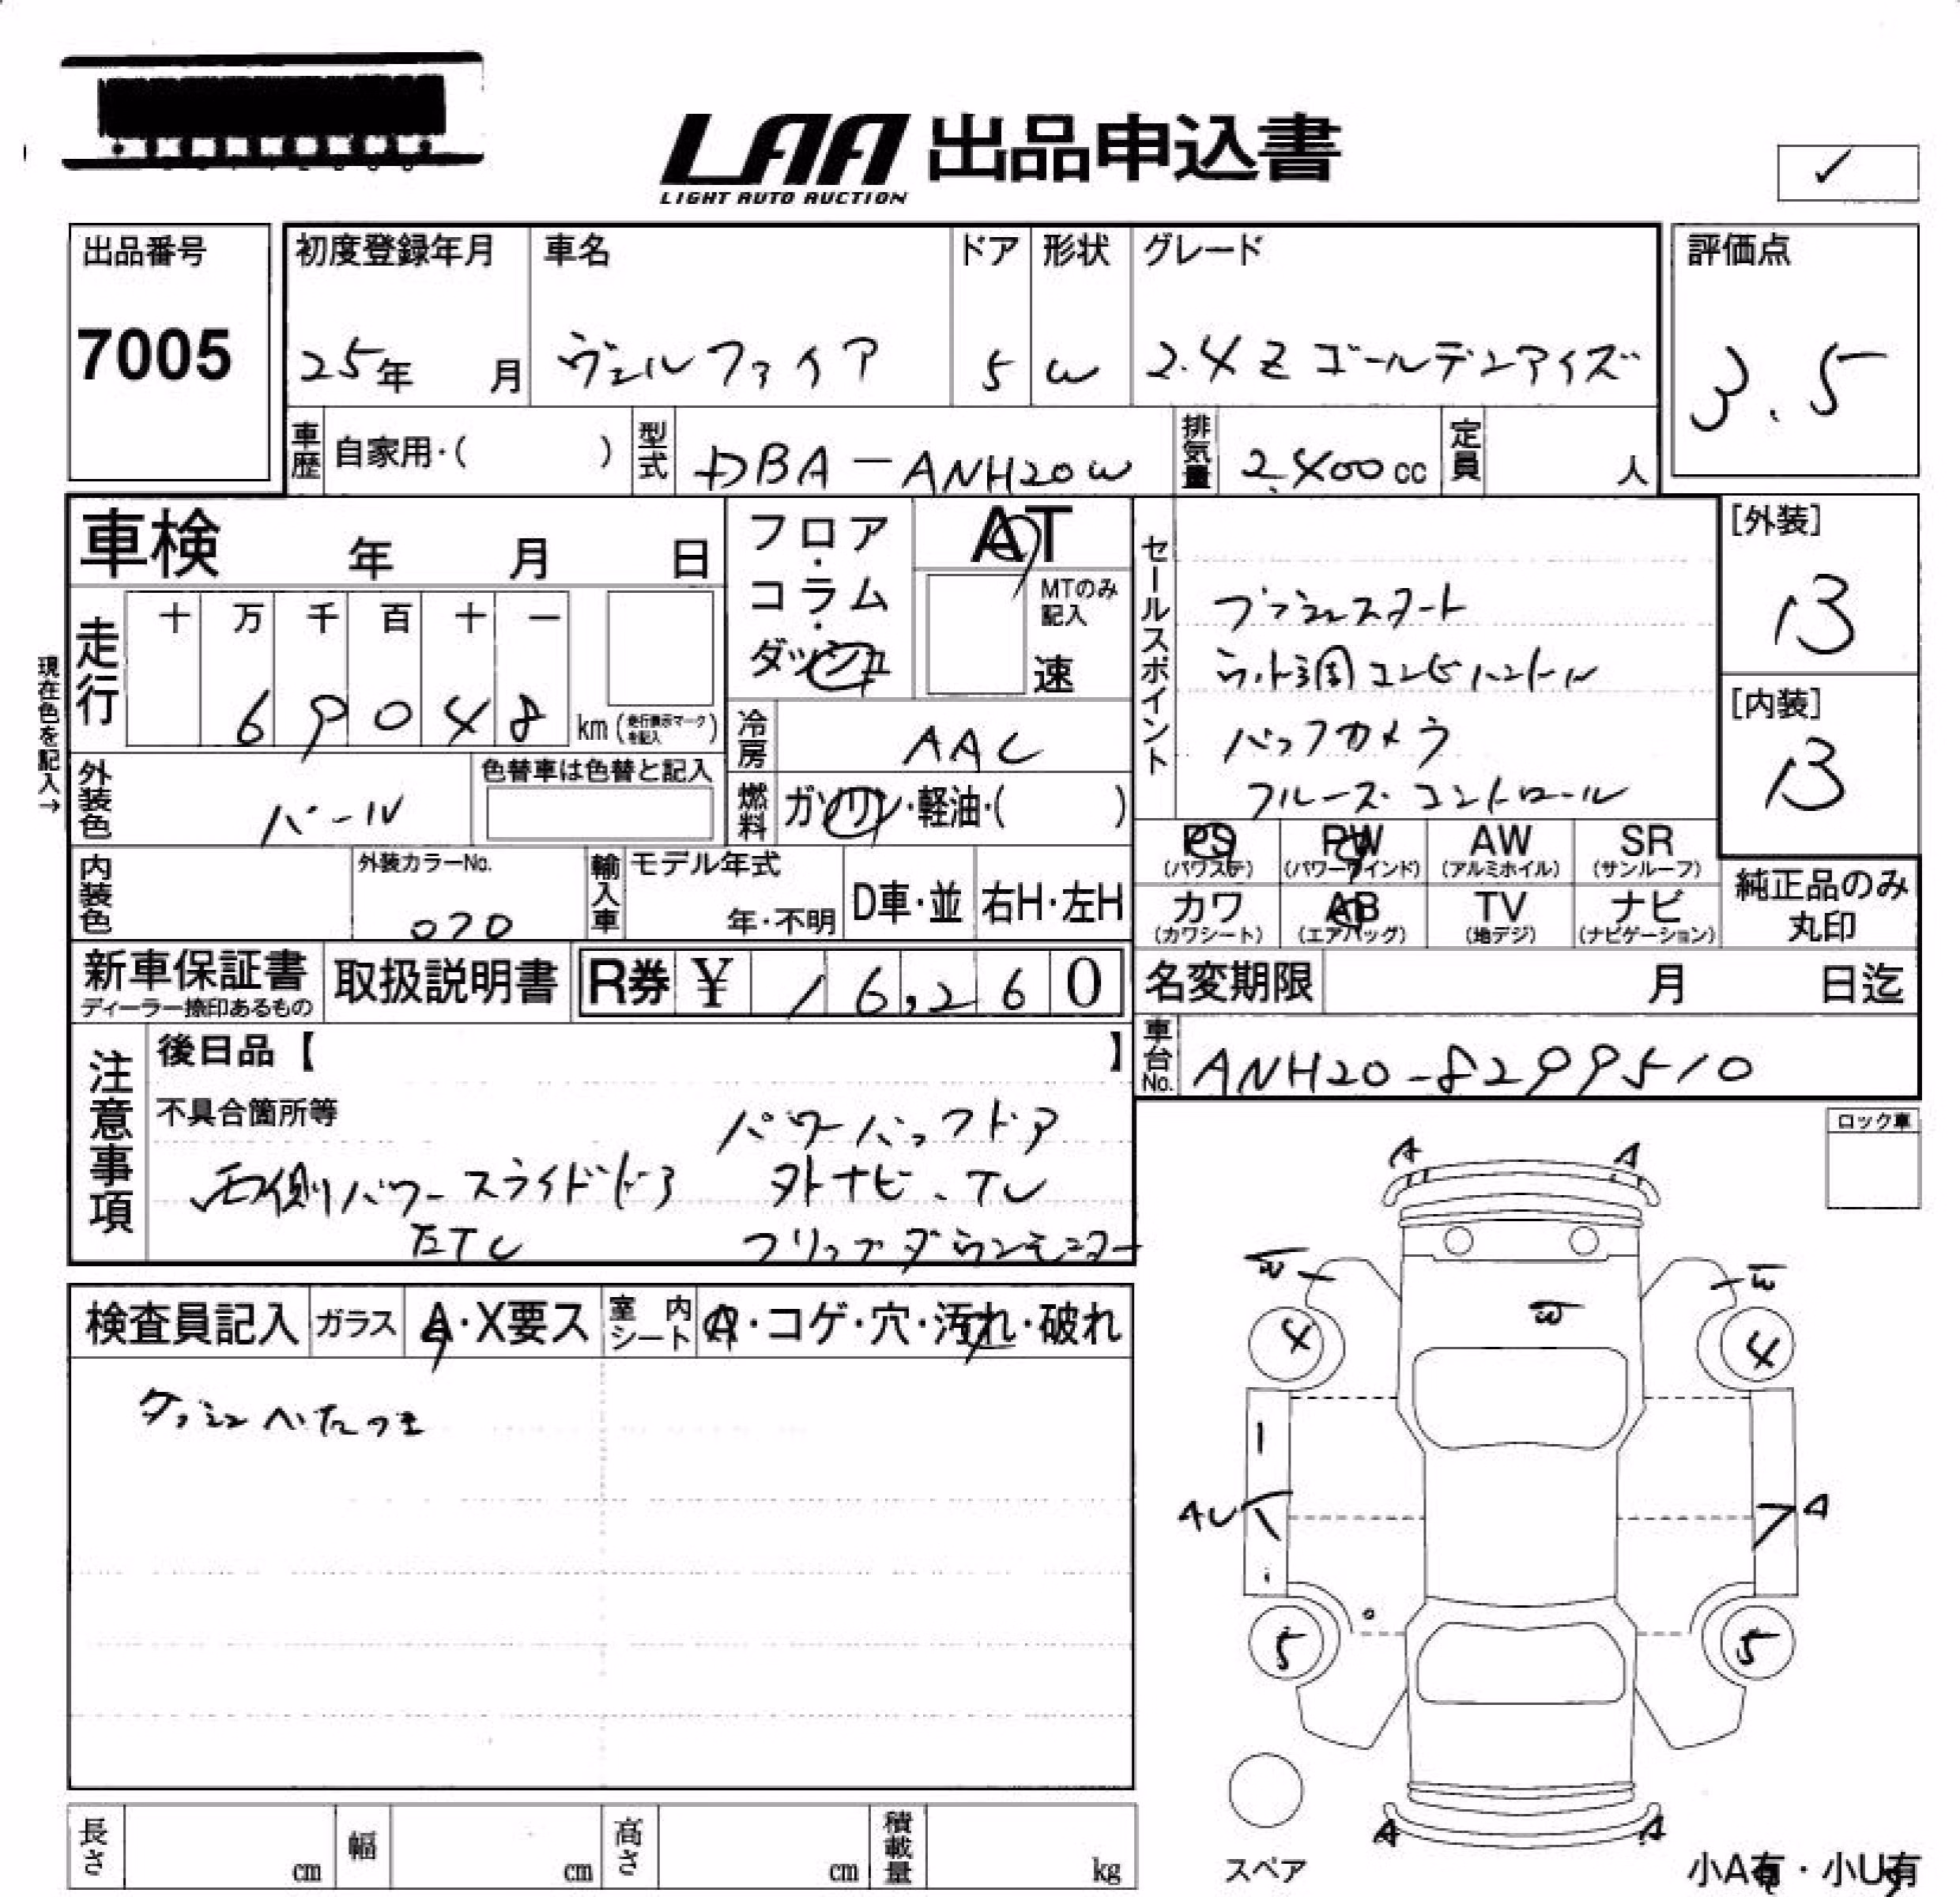 LAA 出品申込書
LIGHT AUTO AUCTION
出品番号
7005
初度登録年月
25年 月
車名
ヴェルファイア
ドア
5
形状
W
グレード
2.4Z ゴールデンアイズ
評価点
3.5
車歴 自家用・( )
型式 DBA-ANH20W
排気量 2,400cc
定員 人
車検 年 月 日
現在色を記入→
走行
十 万 千 百 十 一
6 9 0 4 8 km (走行表示マークを記入)
フロア・コラム・ダッシュ
AT
MTのみ記入
速
冷房 AAC
燃料 ガソリン・軽油・( )
外装色 パール
色替車は色替と記入
内装色
外装カラーNo.
070
輸入車 モデル年式
年・不明
D車・並
右H・左H
セールスポイント
プッシュスタート
ウッド調コンビハンドル
バックカメラ
クルーズコントロール
[外装]
B
[内装]
B
PS (パワステ)
PW (パワーウインド)
AW (アルミホイル)
SR (サンルーフ)
カワ (カワシート)
AB (エアバッグ)
TV (地デジ)
ナビ (ナビゲーション)
純正品のみ丸印
新車保証書
ディーラー捺印あるもの
取扱説明書
R券 ¥ 16,260
名変期限 月 日迄
車台No. ANH20-8299510
注意事項
後日品【 】
不具合箇所等
パワーバックドア
右側パワースライドドア 外ナビ、TV
ETC フリップダウンモニター
検査員記入
ガラス A・X要ス
室内シート A・コゲ・穴・汚れ・破れ
ダッシュべたつき
ロック車
A A
W W
W
4 4
AU A
5 5
A A
スペア
小A有・小U有
長さ cm
幅 cm
高さ cm
積載量 kg